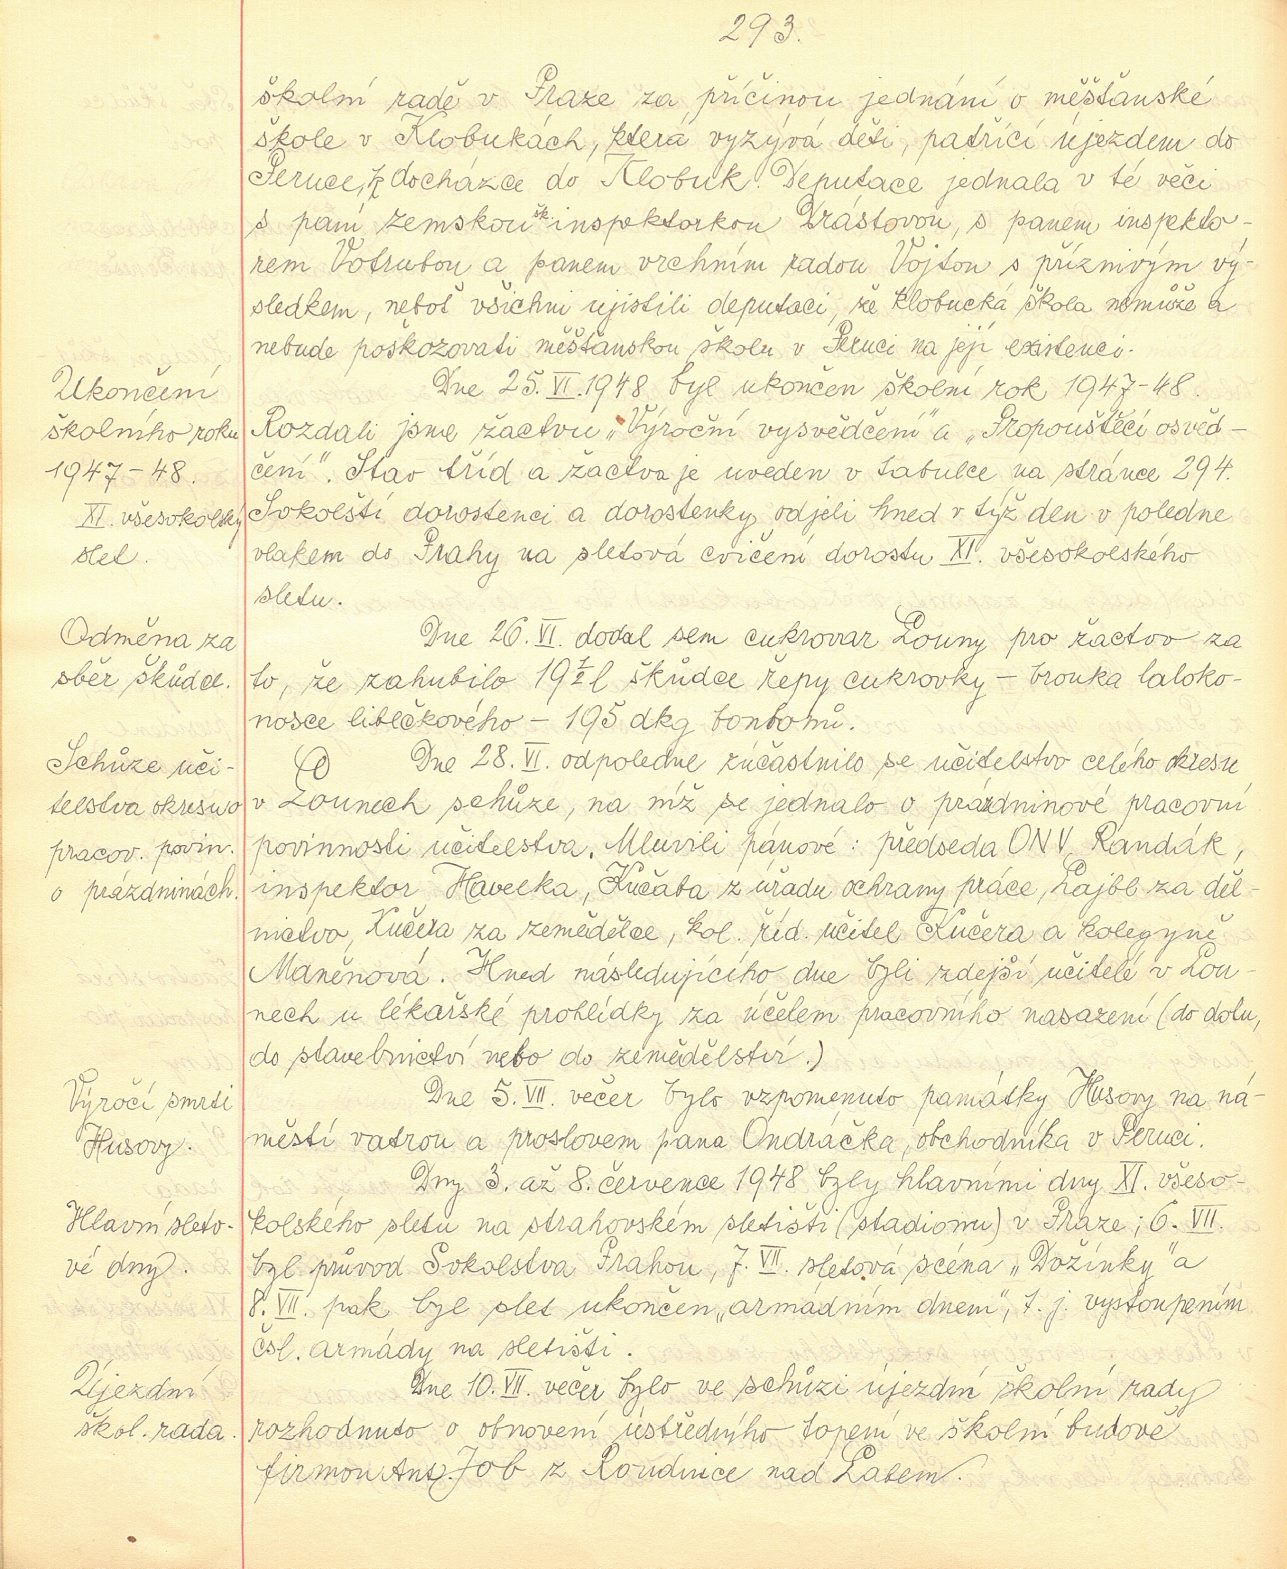 293.
školní radě v Praze za příčinou jednání o měšťanské
škole v Klobukách, která vyzývá děti, patřící újezdem do
Peruce, k docházce do Klobuk. Deputace jednala v té věci
s paní zemskou šk. inspektorkou Drástovou, s panem inspekto-
rem Votrubou a panem vrchním radou Vojtou s příznivým vý-
sledkem, neboť všichni ujistili deputaci, že klobucká škola nemůže a
nebude poškozovati měšťanskou školu v Peruci na její existenci.
Ukončení
školního roku
1947-48.
Dne 25. VI. 1948 byl ukončen školní rok 1947-48.
Rozdali jsme žactvu „Výroční vysvědčení" a „Propouštěcí osvěd-
čení". Stav tříd a žactva je uveden v tabulce na stránce 294.
XI. všesokolský
slet.
Sokolští dorostenci a dorostenky odjeli hned v týž den v poledne
vlakem do Prahy na sletová cvičení dorostu XI. všesokolského
sletu.
Odměna za
sběr škůdce.
Dne 26. VI. dodal sem cukrovar Louny pro žactvo za
to, že zahubilo 19½ l škůdce řepy cukrovky – brouka laloko-
nosce libečkového – 195 dkg bonbonů.
Schůze uči-
telstva okresu o
pracov. povin.
o prázdninách.
Dne 28. VI. odpoledne zúčastnilo se učitelstvo celého okresu
v Lounech schůze, na níž se jednalo o prázdninové pracovní
povinnosti učitelstva. Mluvili pánové: předseda ONV Randák,
inspektor Havelka, Kučaba z úřadu ochrany práce, Lajbl za děl-
nictvo, Kučera za zemědělce, kol. říd. učitel Kučera a kolegyně
Maněnová. Hned následujícího dne byli zdejší učitelé v Lou-
nech u lékařské prohlídky za účelem pracovního nasazení (do dolu,
do stavebnictví nebo do zemědělství.)
Výročí smrti
Husovy.
Dne 5. VII. večer bylo vzpomenuto památky Husovy na ná-
městí vatrou a proslovem pana Ondráčka, obchodníka v Peruci.
Hlavní sleto-
vé dny.
Dny 3. až 8. července 1948 byly hlavními dny XI. všeso-
kolského sletu na strahovském sletišti (stadionu) v Praze; 6. VII.
byl průvod Sokolstva Prahou, 7. VII. sletová scéna „Dožínky" a
8. VII. pak byl slet ukončen „armádním dnem", t. j. vystoupením
čsl. armády na sletišti.
Újezdní
škol. rada.
Dne 10. VII. večer bylo ve schůzi újezdní školní rady
rozhodnuto o obnovení ústředního topení ve školní budově
firmou Ant. Job z Roudnice nad Labem.